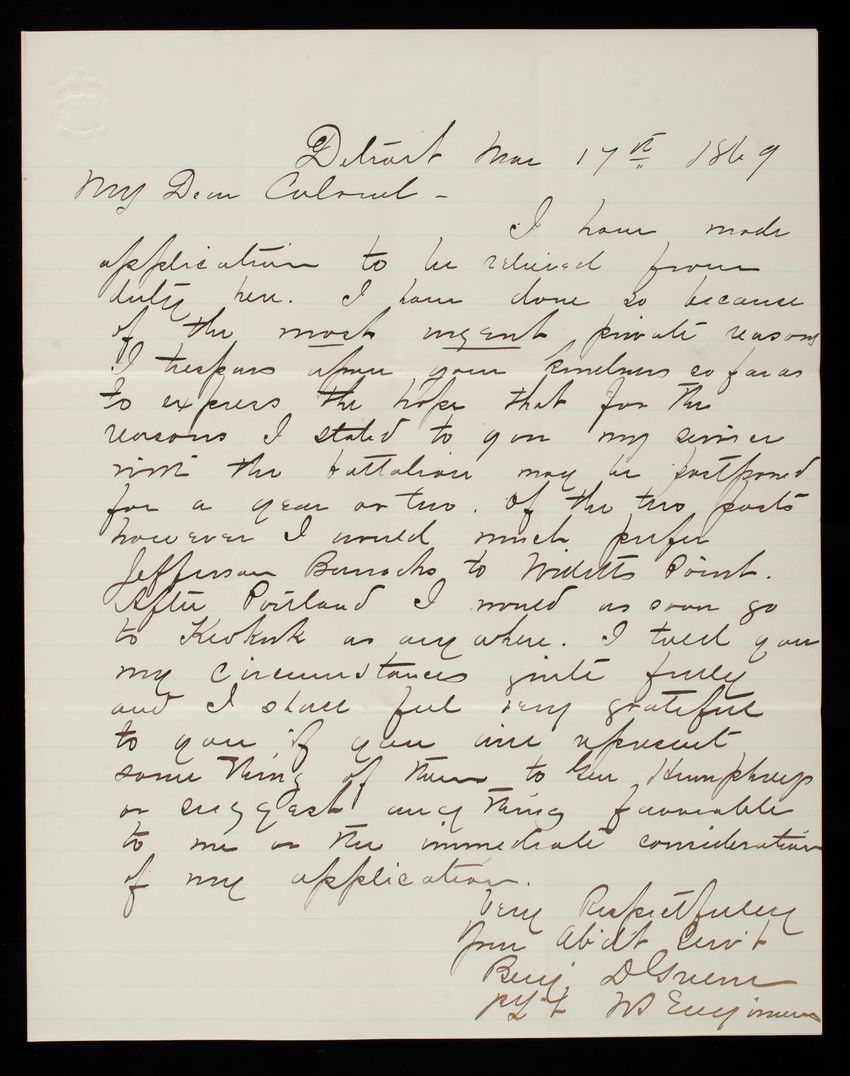 Detroit Mar 17th 1869
My Dear Colonel -
I have made
application to be relieved from
duty here. I have done so because
of the most urgent private reasons
I trespass upon your kindness so far as
to express the hope that for the
reasons I stated to you my service
with the battalion may be postponed
for a year or two. Of the two posts
however I would much prefer
Jefferson Barracks to Willetts Point.
After Portland I would as soon go
to Keokuk as any where. I told you
my circumstances quite fully
and I shall feel very grateful
to you if you will represent
some thing of them to Gen Humphreys
or suggest any thing favorable
to me in the immediate consideration
of my application.
Very Respectfully
Your Ob'dt Serv't
Benj. D Greene
US Engineers